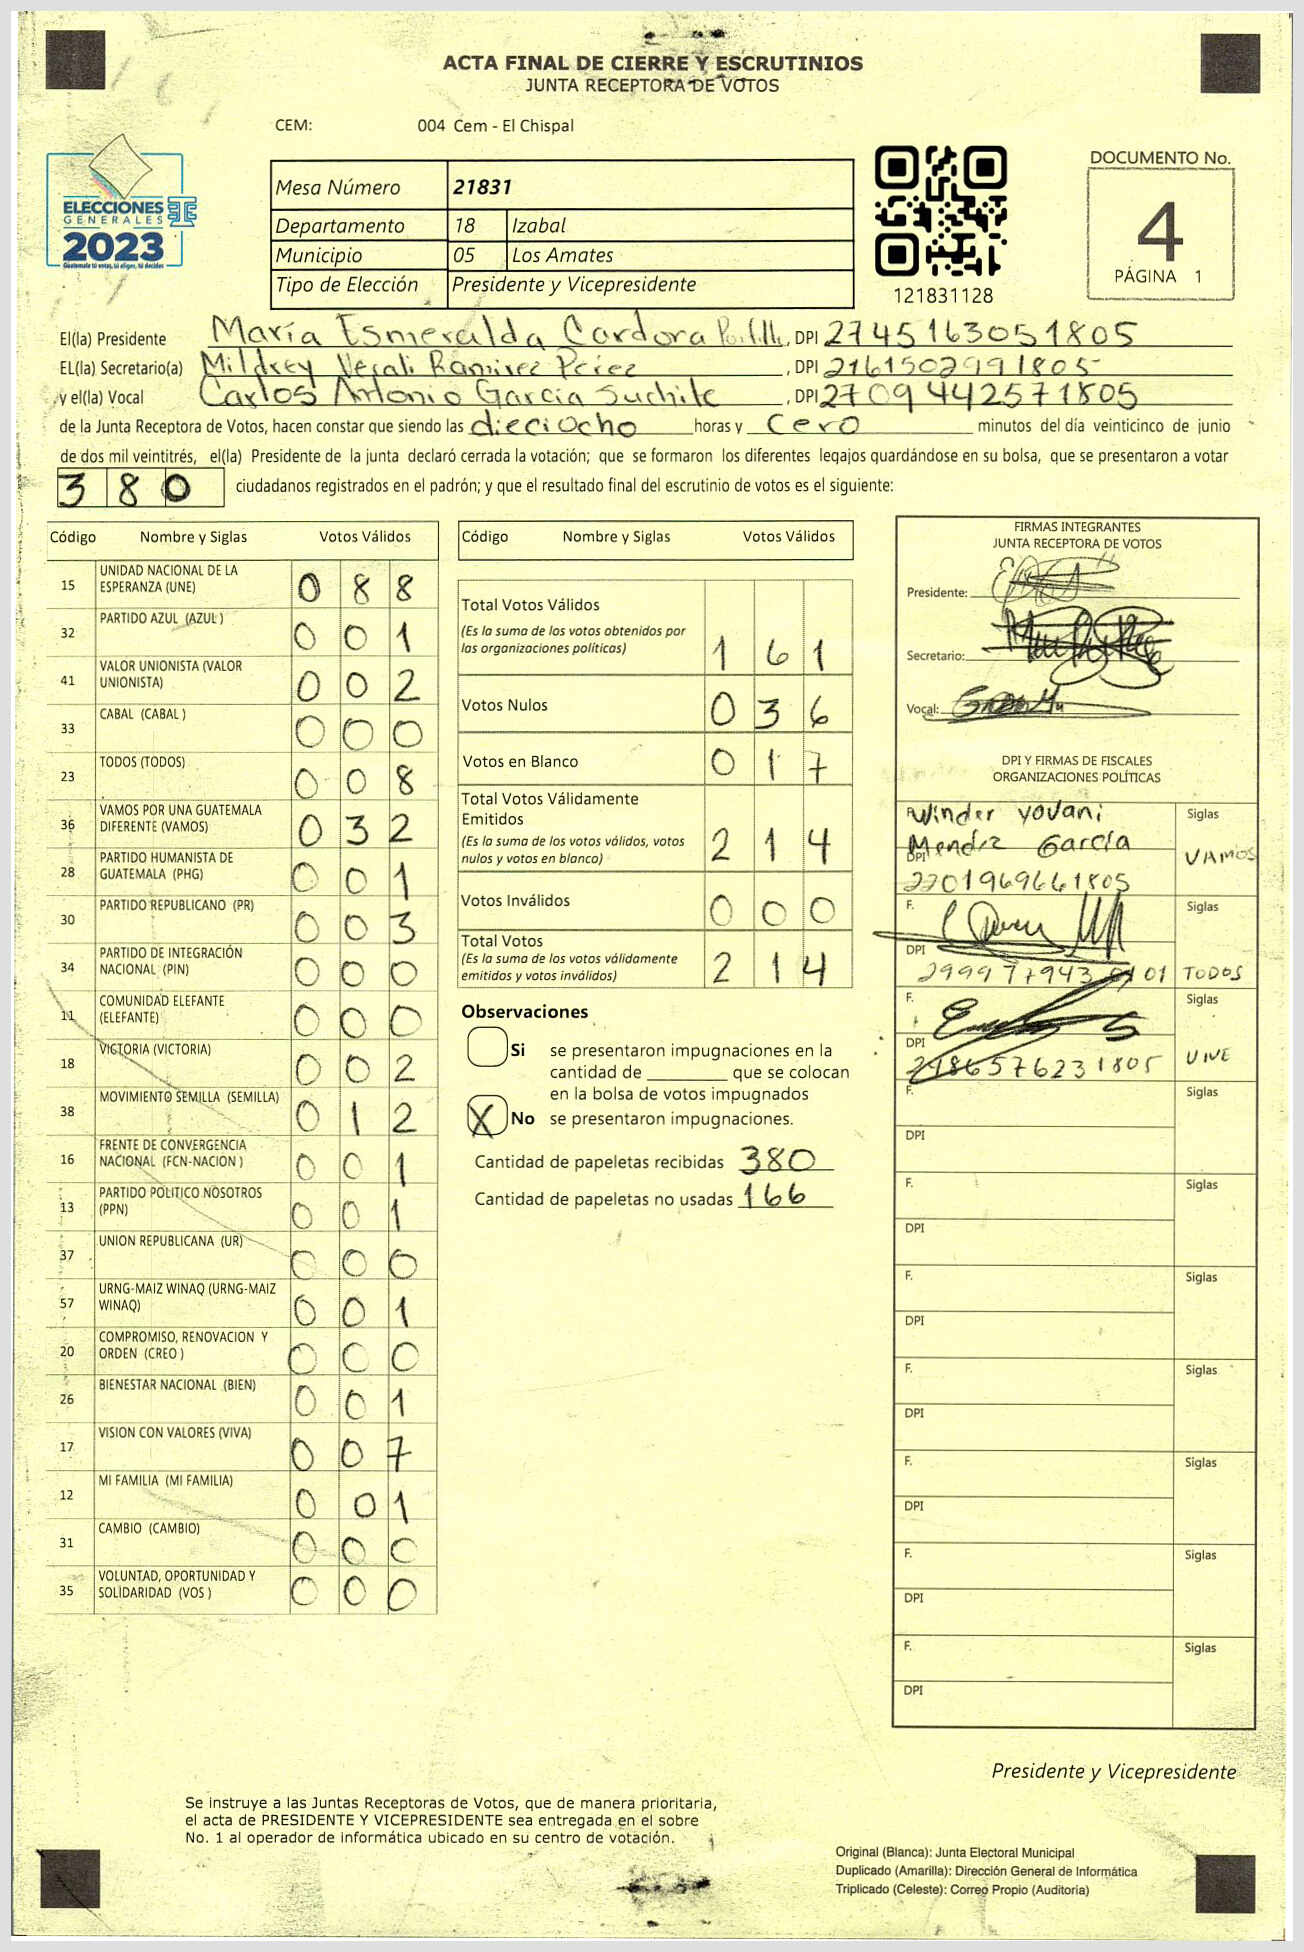 ACTA FINAL DE CIERRE Y ESCRUTINIOS
JUNTA RECEPTORA DE VOTOS
CEM: 004 Cem - El Chispal
ELECCIONES
GENERALES
2023
Guatemala tú votas, tú eliges, tú decides
Mesa Número 21831
Departamento 18 Izabal
Municipio 05 Los Amates
Tipo de Elección Presidente y Vicepresidente
121831128
DOCUMENTO No.
4
PÁGINA 1
El(la) Presidente María Esmeralda Cardora, DPI 2745163051805
EL(la) Secretario(a) Mildrey Ramirez Pérez, DPI 2161502991805
y el(la) Vocal Carlos Antonio García Suchite, DPI 2709442571805
de la Junta Receptora de Votos, hacen constar que siendo las dieciocho horas y cero minutos del día veinticinco de junio
de dos mil veintitrés, el(la) Presidente de la junta declaró cerrada la votación; que se formaron los diferentes legajos guardándose en su bolsa, que se presentaron a votar
380 ciudadanos registrados en el padrón; y que el resultado final del escrutinio de votos es el siguiente:
Código Nombre y Siglas Votos Válidos
15 UNIDAD NACIONAL DE LA
ESPERANZA (UNE) 0 8 8
32 PARTIDO AZUL (AZUL ) 0 0 1
41 VALOR UNIONISTA (VALOR
UNIONISTA) 0 0 2
33 CABAL (CABAL ) 0 0 0
23 TODOS (TODOS) 0 0 8
36 VAMOS POR UNA GUATEMALA
DIFERENTE (VAMOS) 0 3 2
28 PARTIDO HUMANISTA DE
GUATEMALA (PHG) 0 0 1
30 PARTIDO REPUBLICANO (PR) 0 0 3
34 PARTIDO DE INTEGRACIÓN
NACIONAL (PIN) 0 0 0
11 COMUNIDAD ELEFANTE
(ELEFANTE) 0 0 0
18 VICTORIA (VICTORIA) 0 0 2
38 MOVIMIENTO SEMILLA (SEMILLA) 0 1 2
16 FRENTE DE CONVERGENCIA
NACIONAL (FCN-NACION ) 0 0 1
13 PARTIDO POLITICO NOSOTROS
(PPN) 0 0 1
37 UNION REPUBLICANA (UR) 0 0 0
57 URNG-MAIZ WINAQ (URNG-MAIZ
WINAQ) 0 0 1
20 COMPROMISO, RENOVACION Y
ORDEN (CREO ) 0 0 0
26 BIENESTAR NACIONAL (BIEN) 0 0 1
17 VISION CON VALORES (VIVA) 0 0 7
12 MI FAMILIA (MI FAMILIA) 0 0 1
31 CAMBIO (CAMBIO) 0 0 0
35 VOLUNTAD, OPORTUNIDAD Y
SOLIDARIDAD (VOS ) 0 0 0
Código Nombre y Siglas Votos Válidos
Total Votos Válidos
(Es la suma de los votos obtenidos por
las organizaciones políticas) 1 6 1
Votos Nulos 0 3 6
Votos en Blanco 0 1 7
Total Votos Válidamente
Emitidos
(Es la suma de los votos válidos, votos
nulos y votos en blanco) 2 1 4
Votos Inválidos 0 0 0
Total Votos
(Es la suma de los votos válidamente
emitidos y votos inválidos) 2 1 4
Observaciones
Si se presentaron impugnaciones en la
cantidad de ________ que se colocan
en la bolsa de votos impugnados
X No se presentaron impugnaciones.
Cantidad de papeletas recibidas 380
Cantidad de papeletas no usadas 166
FIRMAS INTEGRANTES
JUNTA RECEPTORA DE VOTOS
Presidente:
Secretario:
Vocal:
DPI Y FIRMAS DE FISCALES
ORGANIZACIONES POLÍTICAS
Winder Yovani Siglas
Mendez García
DPI VAMOS
2201969661805
F. Siglas
DPI
TODOS
F. Siglas
DPI
2186576231805 VIVE
F. Siglas
DPI
F. Siglas
DPI
F. Siglas
DPI
F. Siglas
DPI
F. Siglas
DPI
F. Siglas
DPI
F. Siglas
DPI
Presidente y Vicepresidente
Se instruye a las Juntas Receptoras de Votos, que de manera prioritaria,
el acta de PRESIDENTE Y VICEPRESIDENTE sea entregada en el sobre
No. 1 al operador de informática ubicado en su centro de votación.
Original (Blanca): Junta Electoral Municipal
Duplicado (Amarilla): Dirección General de Informática
Triplicado (Celeste): Correo Propio (Auditoría)